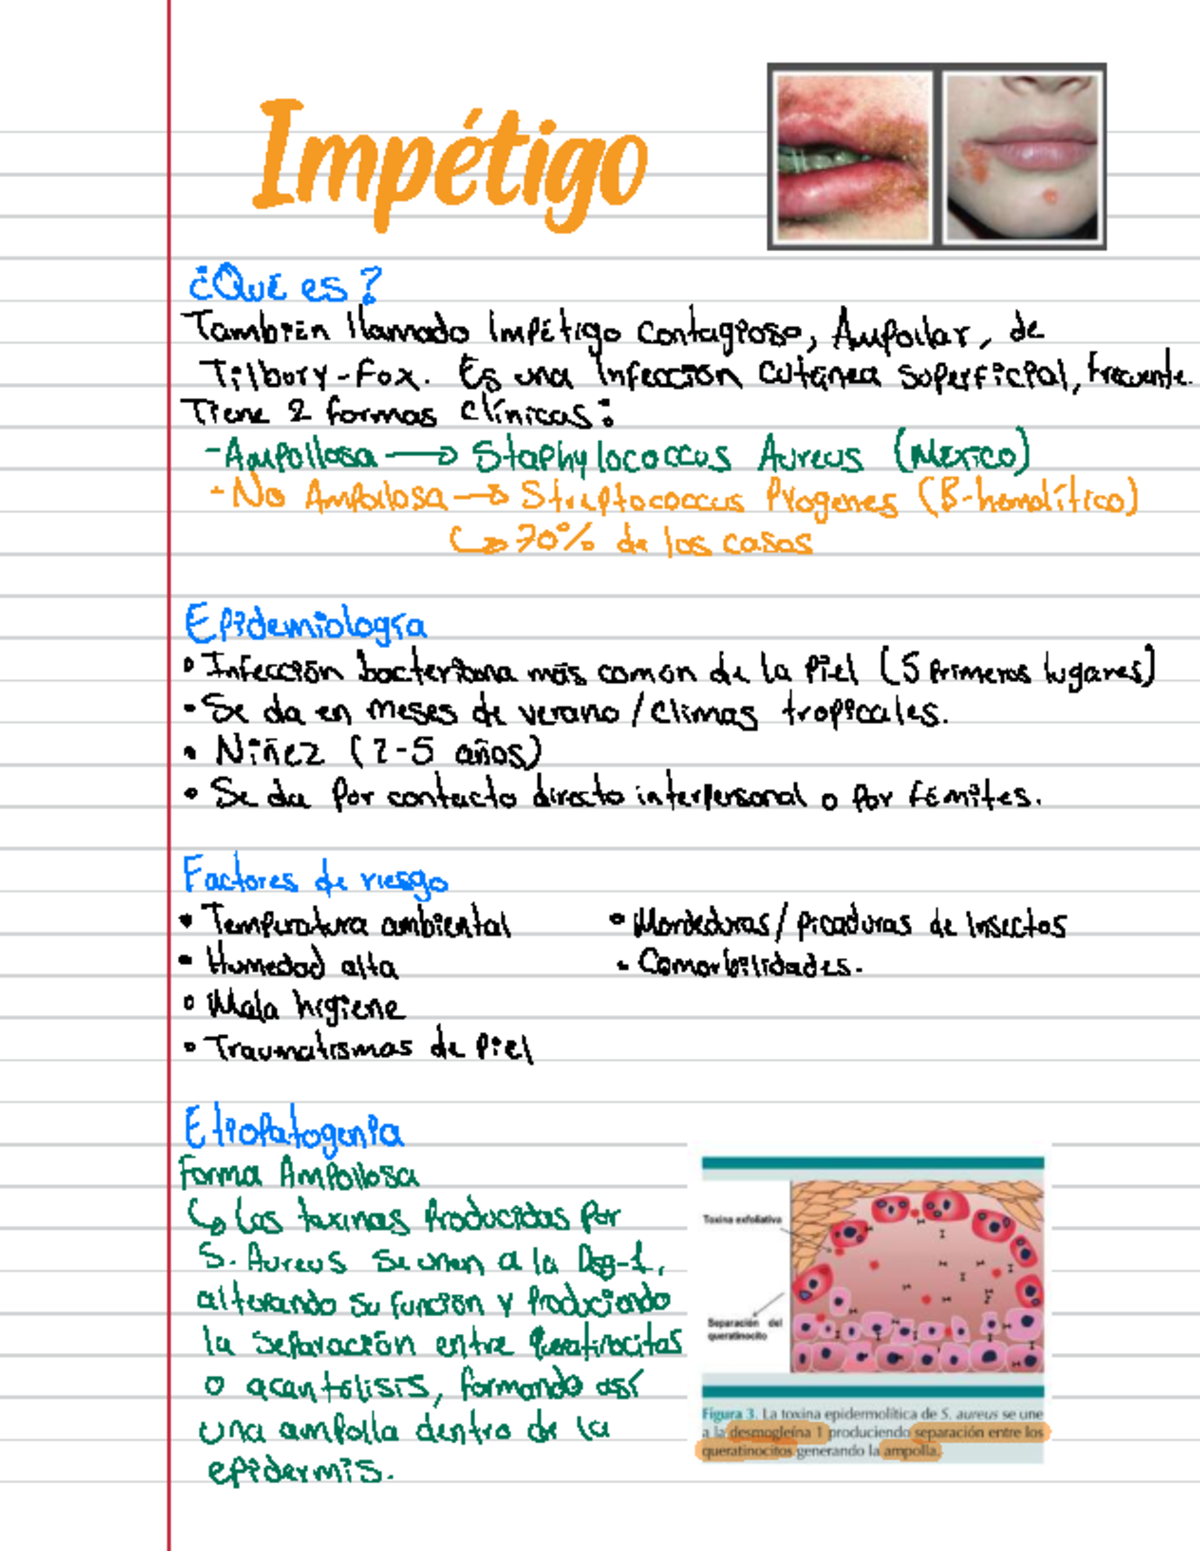 Impétigo
¿Qué es?
También llamado Impétigo contagioso, Ampollar, de
Tilbury-Fox. Es una Infección cutánea superficial, frecuente.
Tiene 2 formas clínicas:
-Ampollosa → Staphylococcus Aureus (México)
-No Ampollosa → Streptococcus Pyogenes (B-hemolítico)
↳ 70% de los casos
Epidemiología
• Infección bacteriana más común de la Piel (5 Primeros lugares)
• Se da en meses de verano / climas tropicales.
• Niñez (2-5 años)
• Se da por contacto directo interpersonal o por fómites.
Factores de riesgo
• Temperatura ambiental
• Humedad alta
• Mala higiene
• Traumatismos de Piel
• Mordeduras / picaduras de Insectos
• Comorbilidades.
Etiopatogenia
Forma Ampollosa
↳ Las toxinas Producidas por
S. Aureus se unen a la Dsg-1,
alterando su función y Produciendo
la separación entre queratinocitos
o acantólisis, formando así
una ampolla dentro de la
epidermis.
Toxina exfoliativa
Separación del
queratinocito
Figura 3. La toxina epidermolítica de S. aureus se une
a la desmogleína 1 produciendo separación entre los
queratinocitos generando la ampolla.